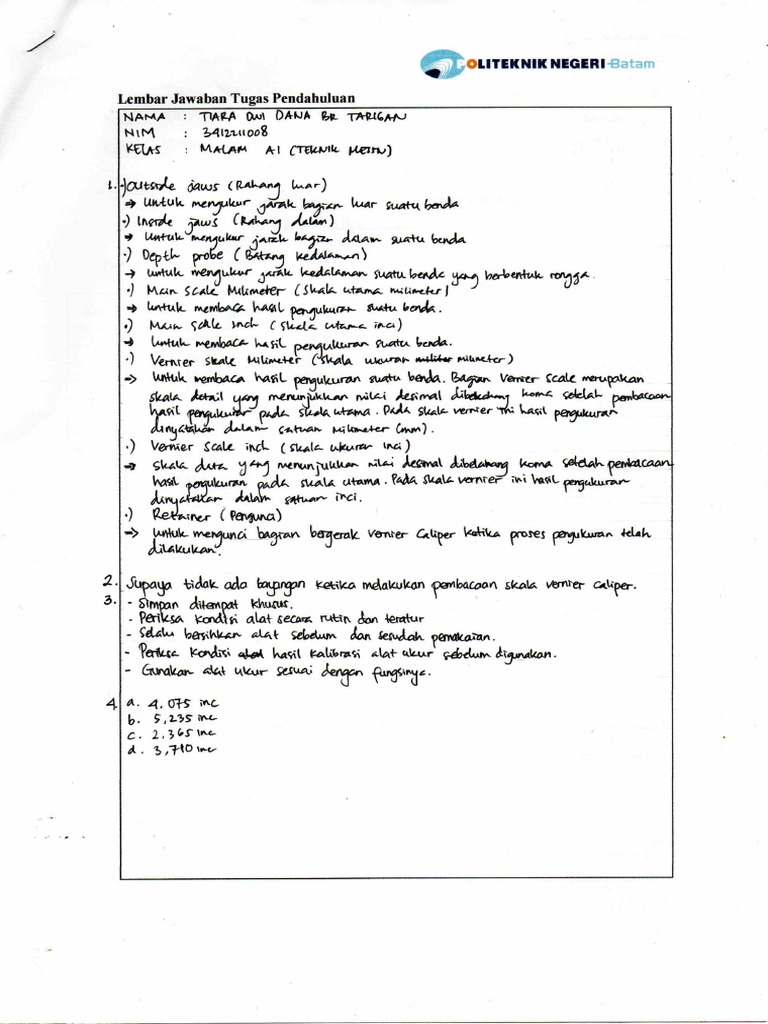 POLITEKNIK NEGERI Batam
Lembar Jawaban Tugas Pendahuluan
NAMA : TIARA DWI DANA BR TARIGAN
NIM : 3412211008
KELAS : MALAM A1 (TEKNIK MESIN)
1. •) Outside jaws (Rahang luar)
→ Untuk mengukur jarak bagian luar suatu benda
•) Inside jaws (Rahang dalam)
→ Untuk mengukur jarak bagian dalam suatu benda
•) Depth probe (Batang kedalaman)
→ Untuk mengukur jarak kedalaman suatu benda yang berbentuk rongga.
•) Main scale Milimeter (skala utama milimeter)
→ Untuk membaca hasil pengukuran suatu benda.
•) Main scale Inch (skala utama inci)
→ Untuk membaca hasil pengukuran suatu benda.
•) Vernier skale Milimeter (skala ukuran milimeter)
→ Untuk membaca hasil pengukuran suatu benda. Bagian Vernier scale merupakan
skala detail yang menunjukkan nilai desimal dibelakang koma setelah pembacaan
hasil pengukuran pada skala utama. Pada skala vernier ini hasil pengukuran
dinyatakan dalam satuan Milimeter (mm).
•) Vernier Scale inch (skala ukuran inci)
→ Skala yang menunjukkan nilai desimal dibelakang koma setelah pembacaan
hasil pengukuran pada skala utama. Pada skala vernier ini hasil pengukuran
dinyatakan dalam satuan inci.
•) Retainer (Pengunci)
→ Untuk mengunci bagian bergerak vernier caliper ketika proses pengukuran telah
dilakukan.
2. Supaya tidak ada bayangan ketika melakukan pembacaan skala vernier caliper.
3. - Simpan ditempat khusus.
- Periksa kondisi alat secara rutin dan teratur
- Selalu bersihkan alat sebelum dan sesudah pemakaian.
- Periksa kondisi hasil kalibrasi alat ukur sebelum digunakan.
- Gunakan alat ukur sesuai dengan fungsinya.
4. a. 4,075 inc
b. 5,235 inc
c. 2,365 inc
d. 3,710 inc